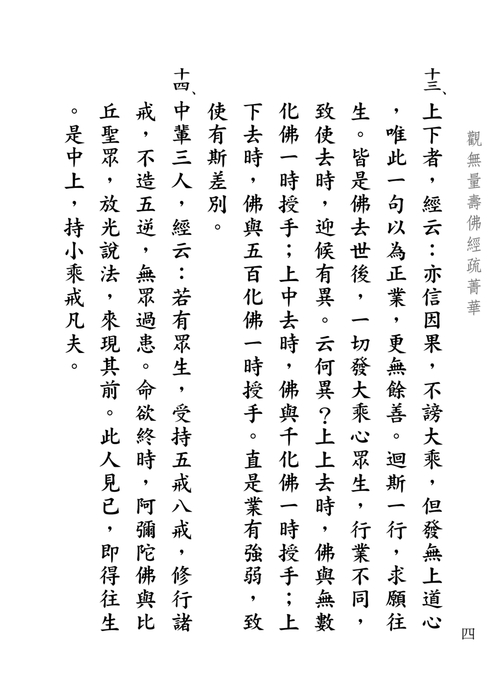 觀無量壽佛經疏菁華
十三、上下者，經云：亦信因果，不謗大乘，但發無上道心
，唯此一句以為正業，更無餘善。迴斯一行，求願往
生。皆是佛去世後，一切發大乘心眾生，行業不同，
致使去時，迎候有異。云何異？上上去時，佛與無數
化佛一時授手；上中去時，佛與千化佛一時授手；上
下去時，佛與五百化佛一時授手。直是業有強弱，致
使有斯差別。
十四、中輩三人，經云：若有眾生，受持五戒八戒，修行諸
戒，不造五逆，無眾過患。命欲終時，阿彌陀佛與比
丘聖眾，放光說法，來現其前。此人見已，即得往生
。是中上，持小乘戒凡夫。
四